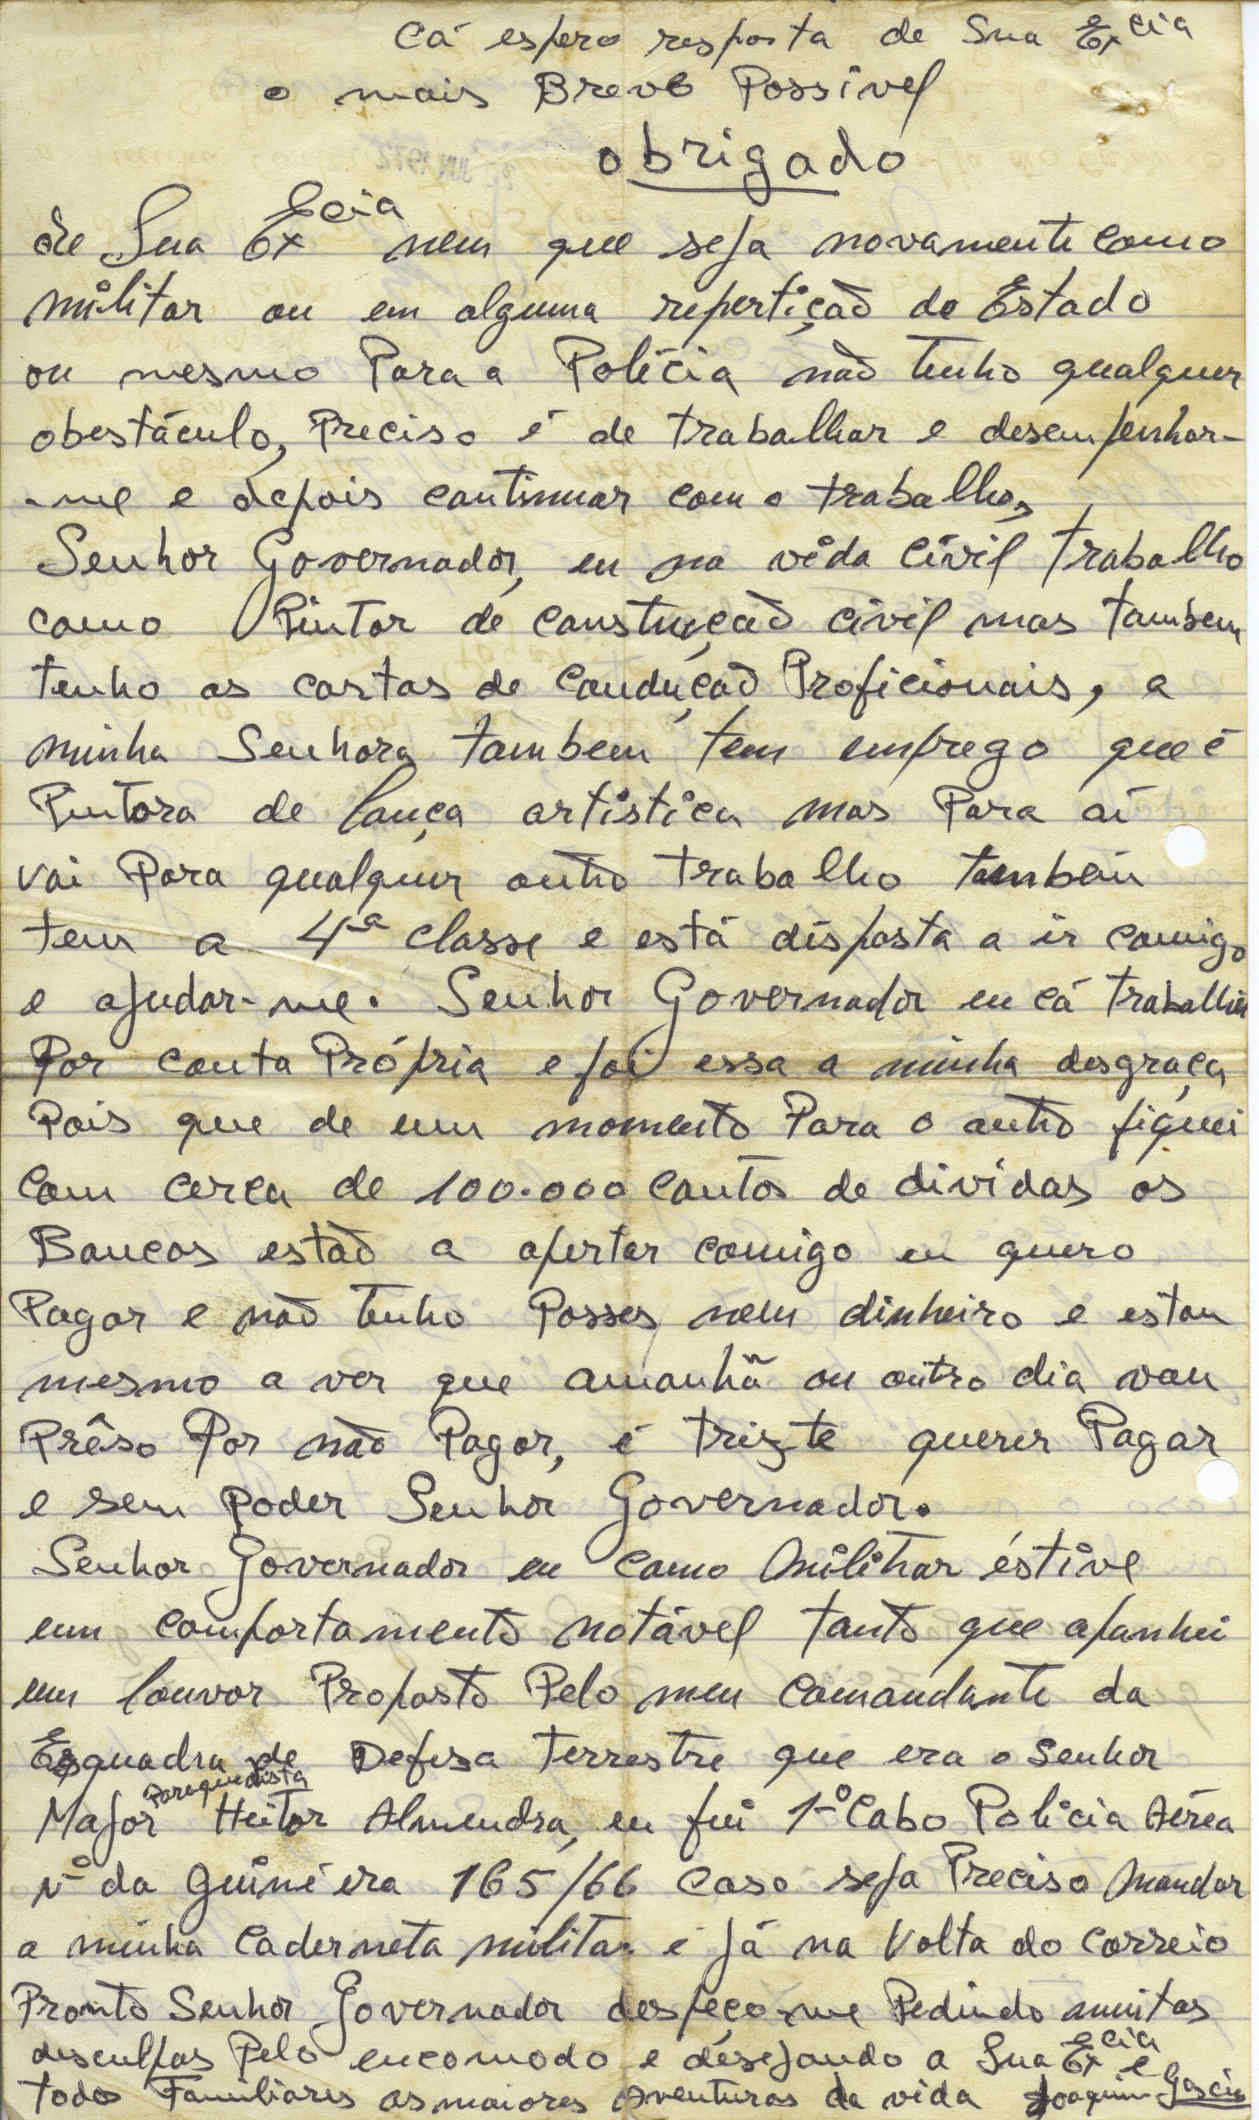 Cá espero resposta de Sua Excia
o mais Breve Possivel
obrigado
de Sua Excia nem que seja novamente como
militar ou em alguma repertição do Estado
ou mesmo Para a Policia não tenho qualquer
obestáculo, Preciso é de trabalhar e desempenhar-
-me e depois continuar com o trabalho,
Senhor Governador, eu na vida civil trabalho
como Pintor de construção civil mas tambem
tenho as cartas de condução Proficionais, a
minha Senhora tambem tem emprego que é
Pintora de louça artistica mas Para aí
vai Para qualquer outro trabalho também
tem a 4ª classe e está disposta a ir comigo
e ajudar-me. Senhor Governador eu cá trabalhei
Por conta Própria e foi essa a minha desgraça
Pois que de um momento Para o outro fiquei
com cerca de 100.000 contos de dividas os
Bancos estão a apertar comigo eu quero
Pagar e não tenho Posses nem dinheiro e estou
mesmo a ver que amanhã ou outro dia vou
Prêso Por não Pagar, é trizte querer Pagar
e sem poder Senhor Governador.
Senhor Governador eu como militar éstive
um comportamento notável tanto que apanhei
um louvor Proposto Pelo meu Comandante da
Esquadra de Defesa terrestre que era o Senhor
Major Paraquedista Heitor Almendra, eu fui 1º Cabo Policia Aérea
Nº da Guiné era 165/66 Caso seja Preciso mandar
a minha Caderneta militar é já na Volta do Correio
Pronto Senhor Governador despeço-me Pedindo muitas
desculpas Pelo encomodo e désejando a Sua Excia e
todos Familiares as maiores aventuras da vida Joaquim Garcia